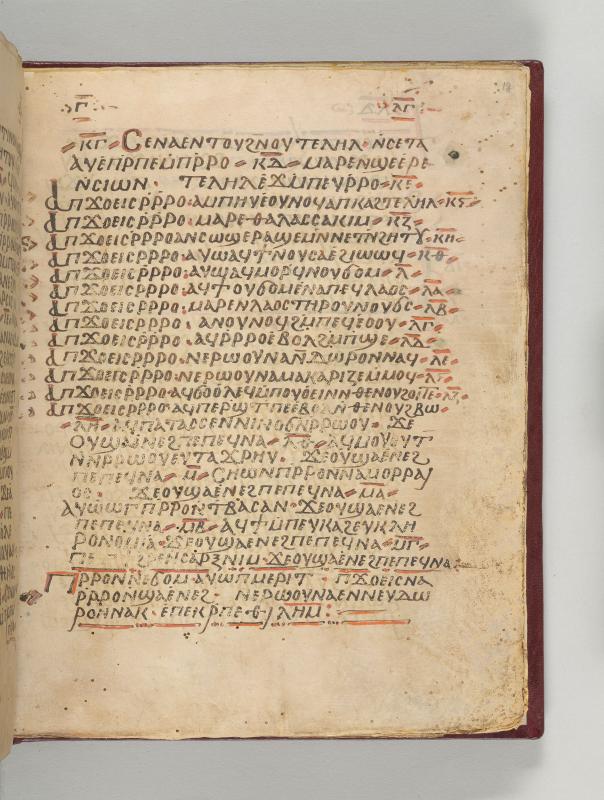 ⲅ ⲗⲅ
ⲕⲅ Ⲥⲉⲛⲁⲉⲛⲧⲟⲩϩⲛⲟⲩ ⲧⲉⲗⲏⲗ ⲛ̀ϭⲉⲧⲁ
ⲁⲩⲉⲡⲣⲡⲉⲙⲡⲣⲣⲟ ⲕⲇ ⲙⲁⲣⲉⲛϣⲉⲉⲣⲉ
ⲛ̀ⲥⲓⲱⲛ ⲧⲉⲗⲏⲗⲉϫⲙⲡⲉⲩⲣⲣⲟ ⲕⲉ
ⲁⲡϫⲟⲉⲓⲥⲣⲣⲣⲟ ⲁⲙⲡⲏⲩⲉⲟⲩⲛⲟϥⲁⲡⲕⲁϩⲧⲉⲗⲏⲗ ⲕⲋ
ⲁⲡϫⲟⲉⲓⲥⲣⲣⲣⲟ ⲙⲁⲣⲉⲑⲁⲗⲁⲥⲥⲁⲕⲓⲙ ⲕⲍ
ⲁⲡϫⲟⲉⲓⲥⲣⲣⲣⲟ ⲁⲛⲥⲱϣⲉⲣⲁϣⲉⲙⲛⲛⲉⲧⲛϩⲏⲧⲟⲩ ⲕⲏ
ⲁⲡϫⲟⲉⲓⲥⲣⲣⲣⲟ ⲁⲩⲱⲁϥϯⲛⲟⲩⲥⲁⲉϩⲓⲱⲱϥ ⲕⲑ
ⲁⲡϫⲟⲉⲓⲥⲣⲣⲣⲟ ⲁⲩⲱⲁϥⲙⲟⲣϥⲛⲟⲩϭⲟⲙ ⲗ
ⲁⲡϫⲟⲉⲓⲥⲣⲣⲣⲟ ⲁϥϯⲟⲩϭⲟⲙⲉⲛⲁⲡⲉϥⲗⲁⲟⲥ ⲗⲁ
ⲁⲡϫⲟⲉⲓⲥⲣⲣⲣⲟ ⲙⲁⲣⲉⲛⲗⲁⲟⲥⲧⲏⲣⲟⲩⲛⲟⲩϭⲥ ⲗⲃ
ⲁⲡϫⲟⲉⲓⲥⲣⲣⲣⲟ ⲁⲛⲟⲩⲛⲟϥϩⲙⲡⲉϥⲉⲟⲟⲩ ⲗⲅ
ⲁⲡϫⲟⲉⲓⲥⲣⲣⲣⲟ ⲁϥⲣⲣⲣⲟⲉⲃⲟⲗϩⲙⲡϣⲉ ⲗⲇ
ⲁⲡϫⲟⲉⲓⲥⲣⲣⲣⲟ ⲛⲉⲣⲱⲟⲩⲛⲁⲛⲇⲱⲣⲟⲛⲛⲁϥ ⲗⲉ
ⲁⲡϫⲟⲉⲓⲥⲣⲣⲣⲟ ⲛⲉⲣⲱⲟⲩⲛⲁⲙⲁⲕⲁⲣⲓⲍⲉⲙⲙⲟϥ ⲗⲋ
ⲁⲡϫⲟⲉⲓⲥⲣⲣⲣⲟ ⲁϥϭⲟⲟⲗⲉϥⲙⲡⲟⲩⲟⲉⲓⲛⲛⲑⲉⲛⲟⲩϩⲟⲓⲧⲉ ⲗⲍ
ⲁⲡϫⲟⲉⲓⲥⲣⲣⲣⲟ ⲁϥⲡⲉⲣϣⲧⲡⲉⲉⲃⲟⲗⲛⲑⲉⲛⲟⲩϩⲃⲱ
ⲗⲏ ⲁϥⲡⲁⲧⲁⲥⲥⲉⲛⲛⲓⲛⲟϭⲛⲣⲣⲱⲟⲩ ϫⲉ
ⲟⲩϣⲁⲉⲛⲉϩⲡⲉⲡⲉϥⲛⲁ ⲗⲑ ⲁϥⲙⲟⲩⲟⲩⲧ
ⲛⲛⲣⲣⲱⲟⲩⲉⲩⲧⲁϫⲣⲏⲩ ϫⲉⲟⲩϣⲁⲉⲛⲉϩ
ⲡⲉⲡⲉϥⲛⲁ ⲙ ⲥⲏⲱⲛⲡⲣⲣⲟⲛⲛⲁⲙⲟⲣⲣⲁⲓ
ⲟⲥ ϫⲉⲟⲩϣⲁⲉⲛⲉϩⲡⲉⲡⲉϥⲛⲁ ⲙⲁ
ⲁⲩⲱⲱⲅⲡⲣⲣⲟⲛⲧⲃⲁⲥⲁⲛ ϫⲉⲟⲩϣⲁⲉⲛⲉϩ
ⲡⲉⲡⲉϥⲛⲁ ⲙⲃ ⲁϥϯⲙⲡⲉⲩⲕⲁϩⲉⲩⲕⲗⲏ
ⲣⲟⲛⲟⲙⲓⲁ ϫⲉⲟⲩϣⲁⲉⲛⲉϩⲡⲉⲡⲉϥⲛⲁ ⲙⲅ
ⲥⲁⲣⲝⲛⲓⲙ ϫⲉⲟⲩϣⲁⲉⲛⲉϩⲡⲉⲡⲉϥⲛⲁ
Ⲡⲣⲣⲟⲛⲛⲉϭⲟⲙ ⲁⲩⲱⲡⲙⲉⲣⲓⲧ ⲡϫⲟⲉⲓⲥⲛⲁ
ⲣⲣⲣⲟⲛϣⲁⲉⲛⲉϩ ⲛⲉⲣⲱⲟⲩⲛⲁⲉⲛⲛⲉⲩⲇⲱ
ⲣⲟⲛⲛⲁⲕ ⲉⲡⲉⲕⲣⲡⲉ ⲑⲓⲗⲏⲙ